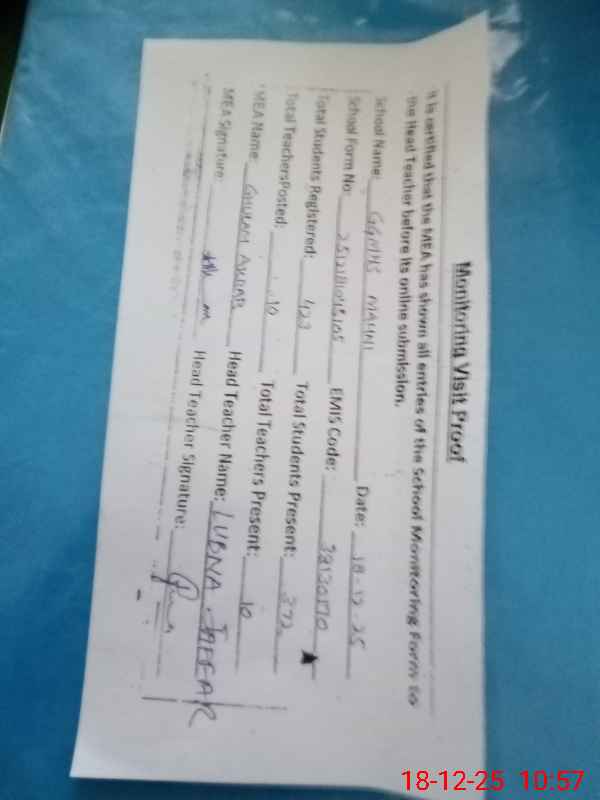 Monitoring Visit Proof
It is certified that the MEA has shown all entries of the School Monitoring Form to
the Head Teacher before its online submission.
School Name: GGMHS Date: 18-12-25
School Form No: EMIS Code:
Total Students Registered: 423 Total Students Present: 372
Total TeachersPosted: 10 Total Teachers Present: 10
MEA Name: GHULAM AKBAR Head Teacher Name: LUBNA
MEA Signature: Head Teacher Signature:
18-12-25 10:57